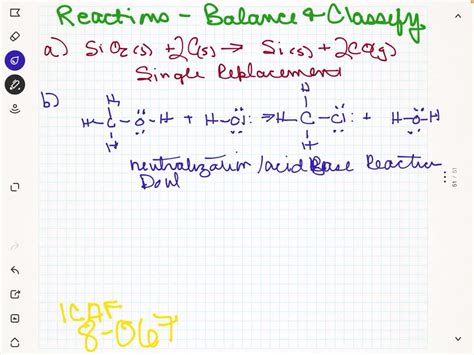 Reactions - Balance & Classify
a) SiO₂(s) + 2C(s) → Si(s) + 2CO(g)
Single Replacement
b)
H H
H-C-O-H + H-Cl: → H-C-Cl: + H-O-H
H H
neutralization/acid Base Reaction
Doul
1CAF
8-067